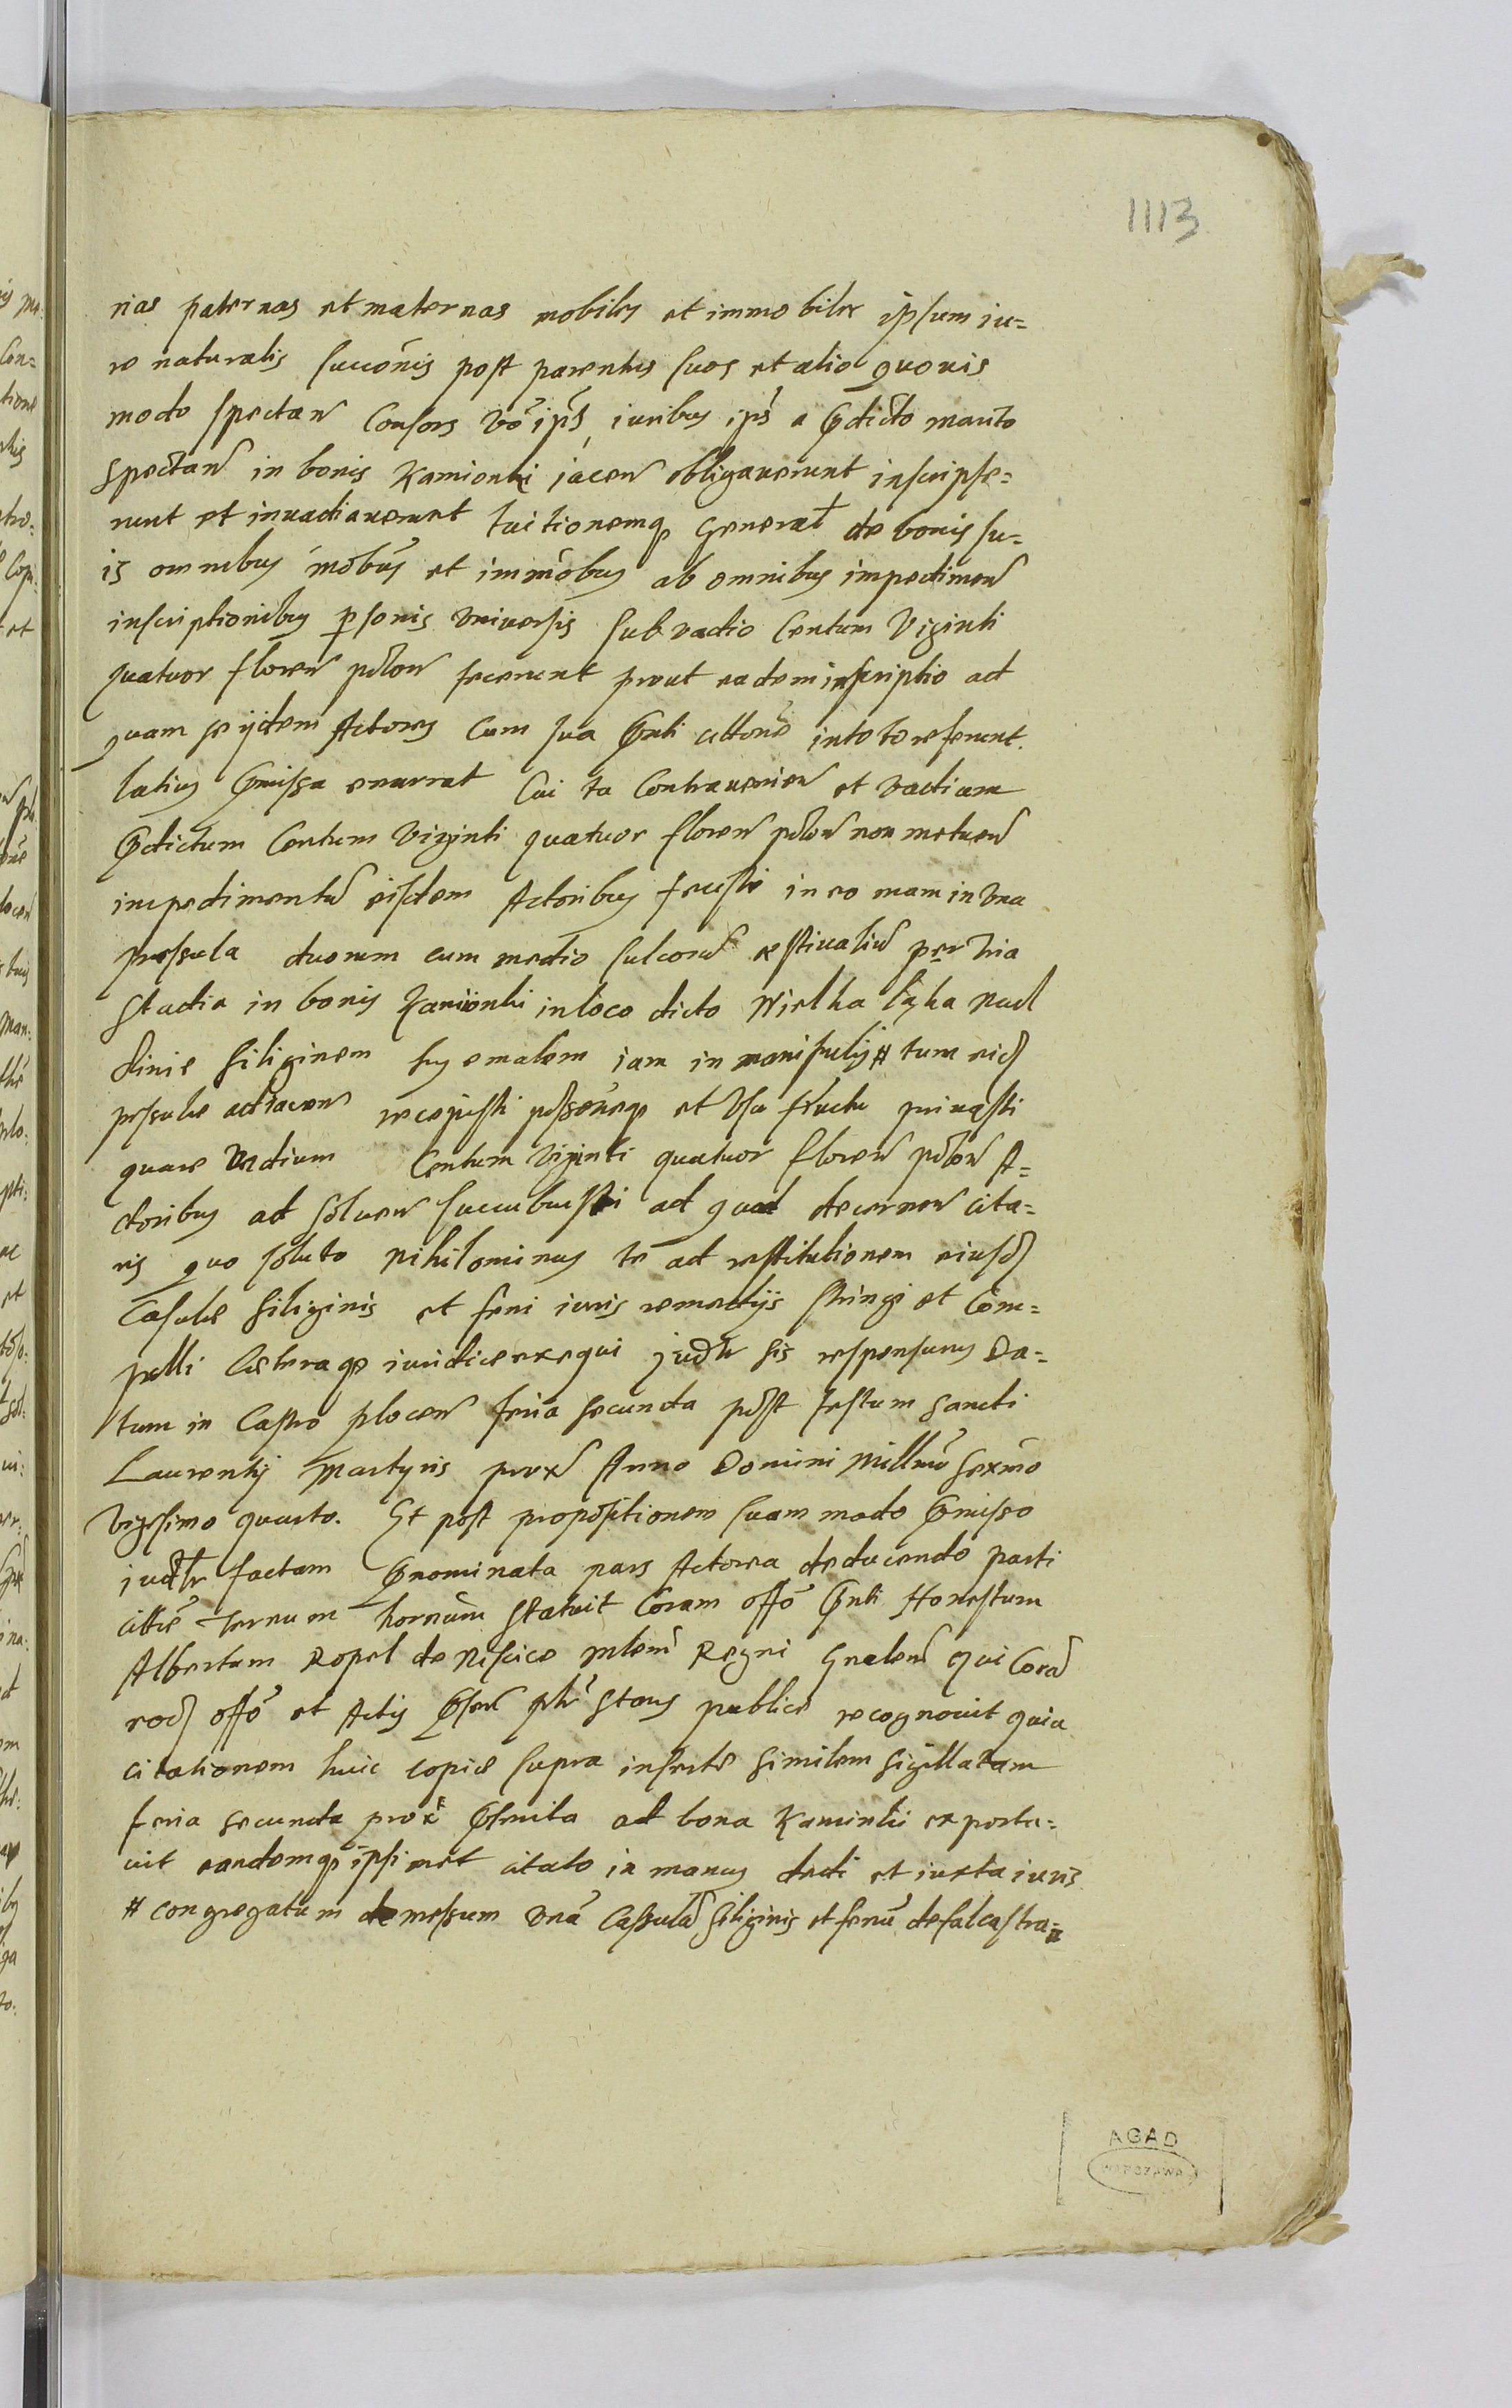 1113
rias paternas et maternas mobiles et immobiles ipsum iu=
re naturalis succōnis post parentes suos et alio quovis
modo spectan Consors vō ips̄, iuribus ips̄ a p̄dicto marito
spectan in bonis Kamionki iacen obligaverunt inscripse=
runt et invadiaverunt tuitionemq̨ general de bonis su=
is omnibus mōbus et immōbus ab omnibus impedimen
inscriptionibus psonis universis sub vadio Centum Viginti
quatuor floren polon fecerunt prout eadem inscriptio ad
quam se ijdem Actores cum sua p̄nti cittōne in toto referunt.
latius p̄missa enarrat Cui tu Contravenien et vadium
p̄dictum Centum Viginti quatuor floren polon non metuen
impedimentū eisdem Actoribus fecisti in eo nam in una
pessula duorum cum medio sulcorū estivaliū per tria
stadia in bonis Kamionki in loco dicto Wielka Łąka nad
siliginem hyemalem iam in manipulis # tum eid
pessule adiacen recepisti possōneq̨ et usu fructu privasti
quare vadium Centum Viginti quatuor floren polon A=
ctoribus ad solven succubuisti ad quod decernen cita=
ris quo soluto nihilominus te ad restitutionem eiusd
Casule siliginis et feni iuris remedijs stringi et Com=
pelli Cæteraq̨ iuridice exequi judtr sis responsurus Da=
tum in Castro plocen feria secunda post festum sancti
Laurentij Martyris prox Anno Domini Millmō sexmō
vigesimo quarto. Et post propositionem suam modo p̄misso
iudtr factam p̄nominata pars Actorea deducendo parti
cittē terrum statuit Coram offō p̄nti Honestum
Albertum Ropel de mlem̄ Regni gnalem qui Corā
eod offō et Actis p̄sen stans publice recognovit quia
citationem huic copie supra inserte similem sigillatam
feria secunda prox̄ p̄terita ad bona Kamionki exporta=
vit eandemq̨ ipsimet citato in manus dedi et iuxta iuris
# congregatum demessum unā Cassulā siliginis et fenū defalcastra=
AGAD
WARSZAWA